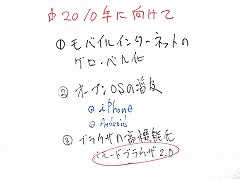 φ2010年に向けて
① モバイルインターネットの
グローバル化
② オープンOSの普及
◎ iPhone
◎ Android
③ ブラウザの高機能化
iモードブラウザ2.0